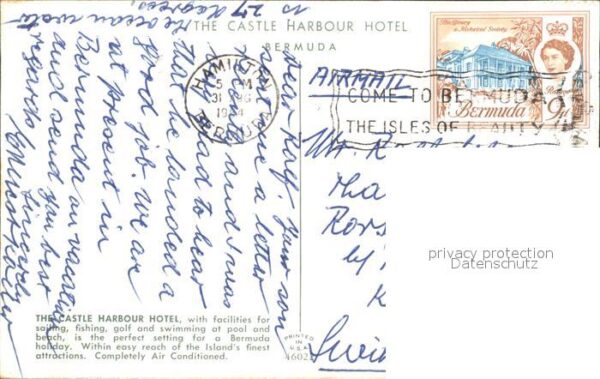 THE CASTLE HARBOUR HOTEL
BERMUDA
HAMILTON
5 PM
31
BERMUDA
AIRMAIL
COME TO BERMUDA
THE ISLES OF BEAUTY
The Library
& Historical Society
Bermuda
9d
Dear Ralf, Your son
sent me a letter
and I was
glad to hear
that he landed a
good job. We are
at present in
Bermuda on vacation
and send you best
regards
Sincerely
the ocean water
is 27 degrees,
THE CASTLE HARBOUR HOTEL, with facilities for
sailing, fishing, golf and swimming at pool and
beach, is the perfect setting for a Bermuda
holiday. Within easy reach of the Island's finest
attractions. Completely Air Conditioned.
PRINTED
IN
U.S.A.
privacy protection
Datenschutz